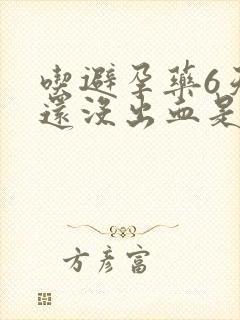 喫避孕藥6天
還沒出血是
方彥富